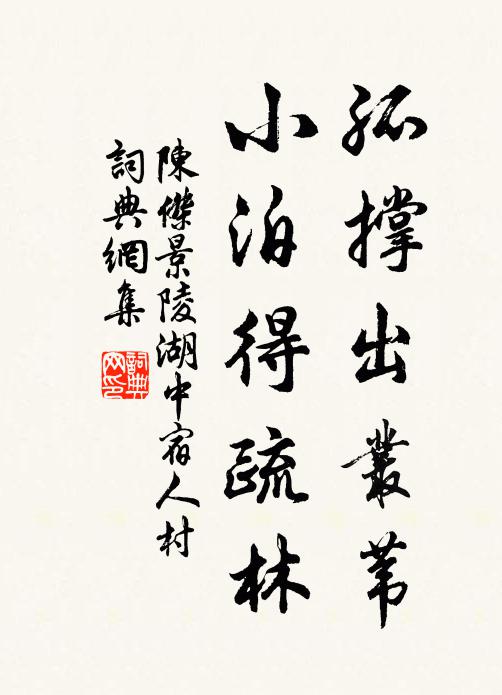 孤撐出叢葦
小泊得疏林
陳傑景陵湖中宿人村
詞典網集
詞典网印